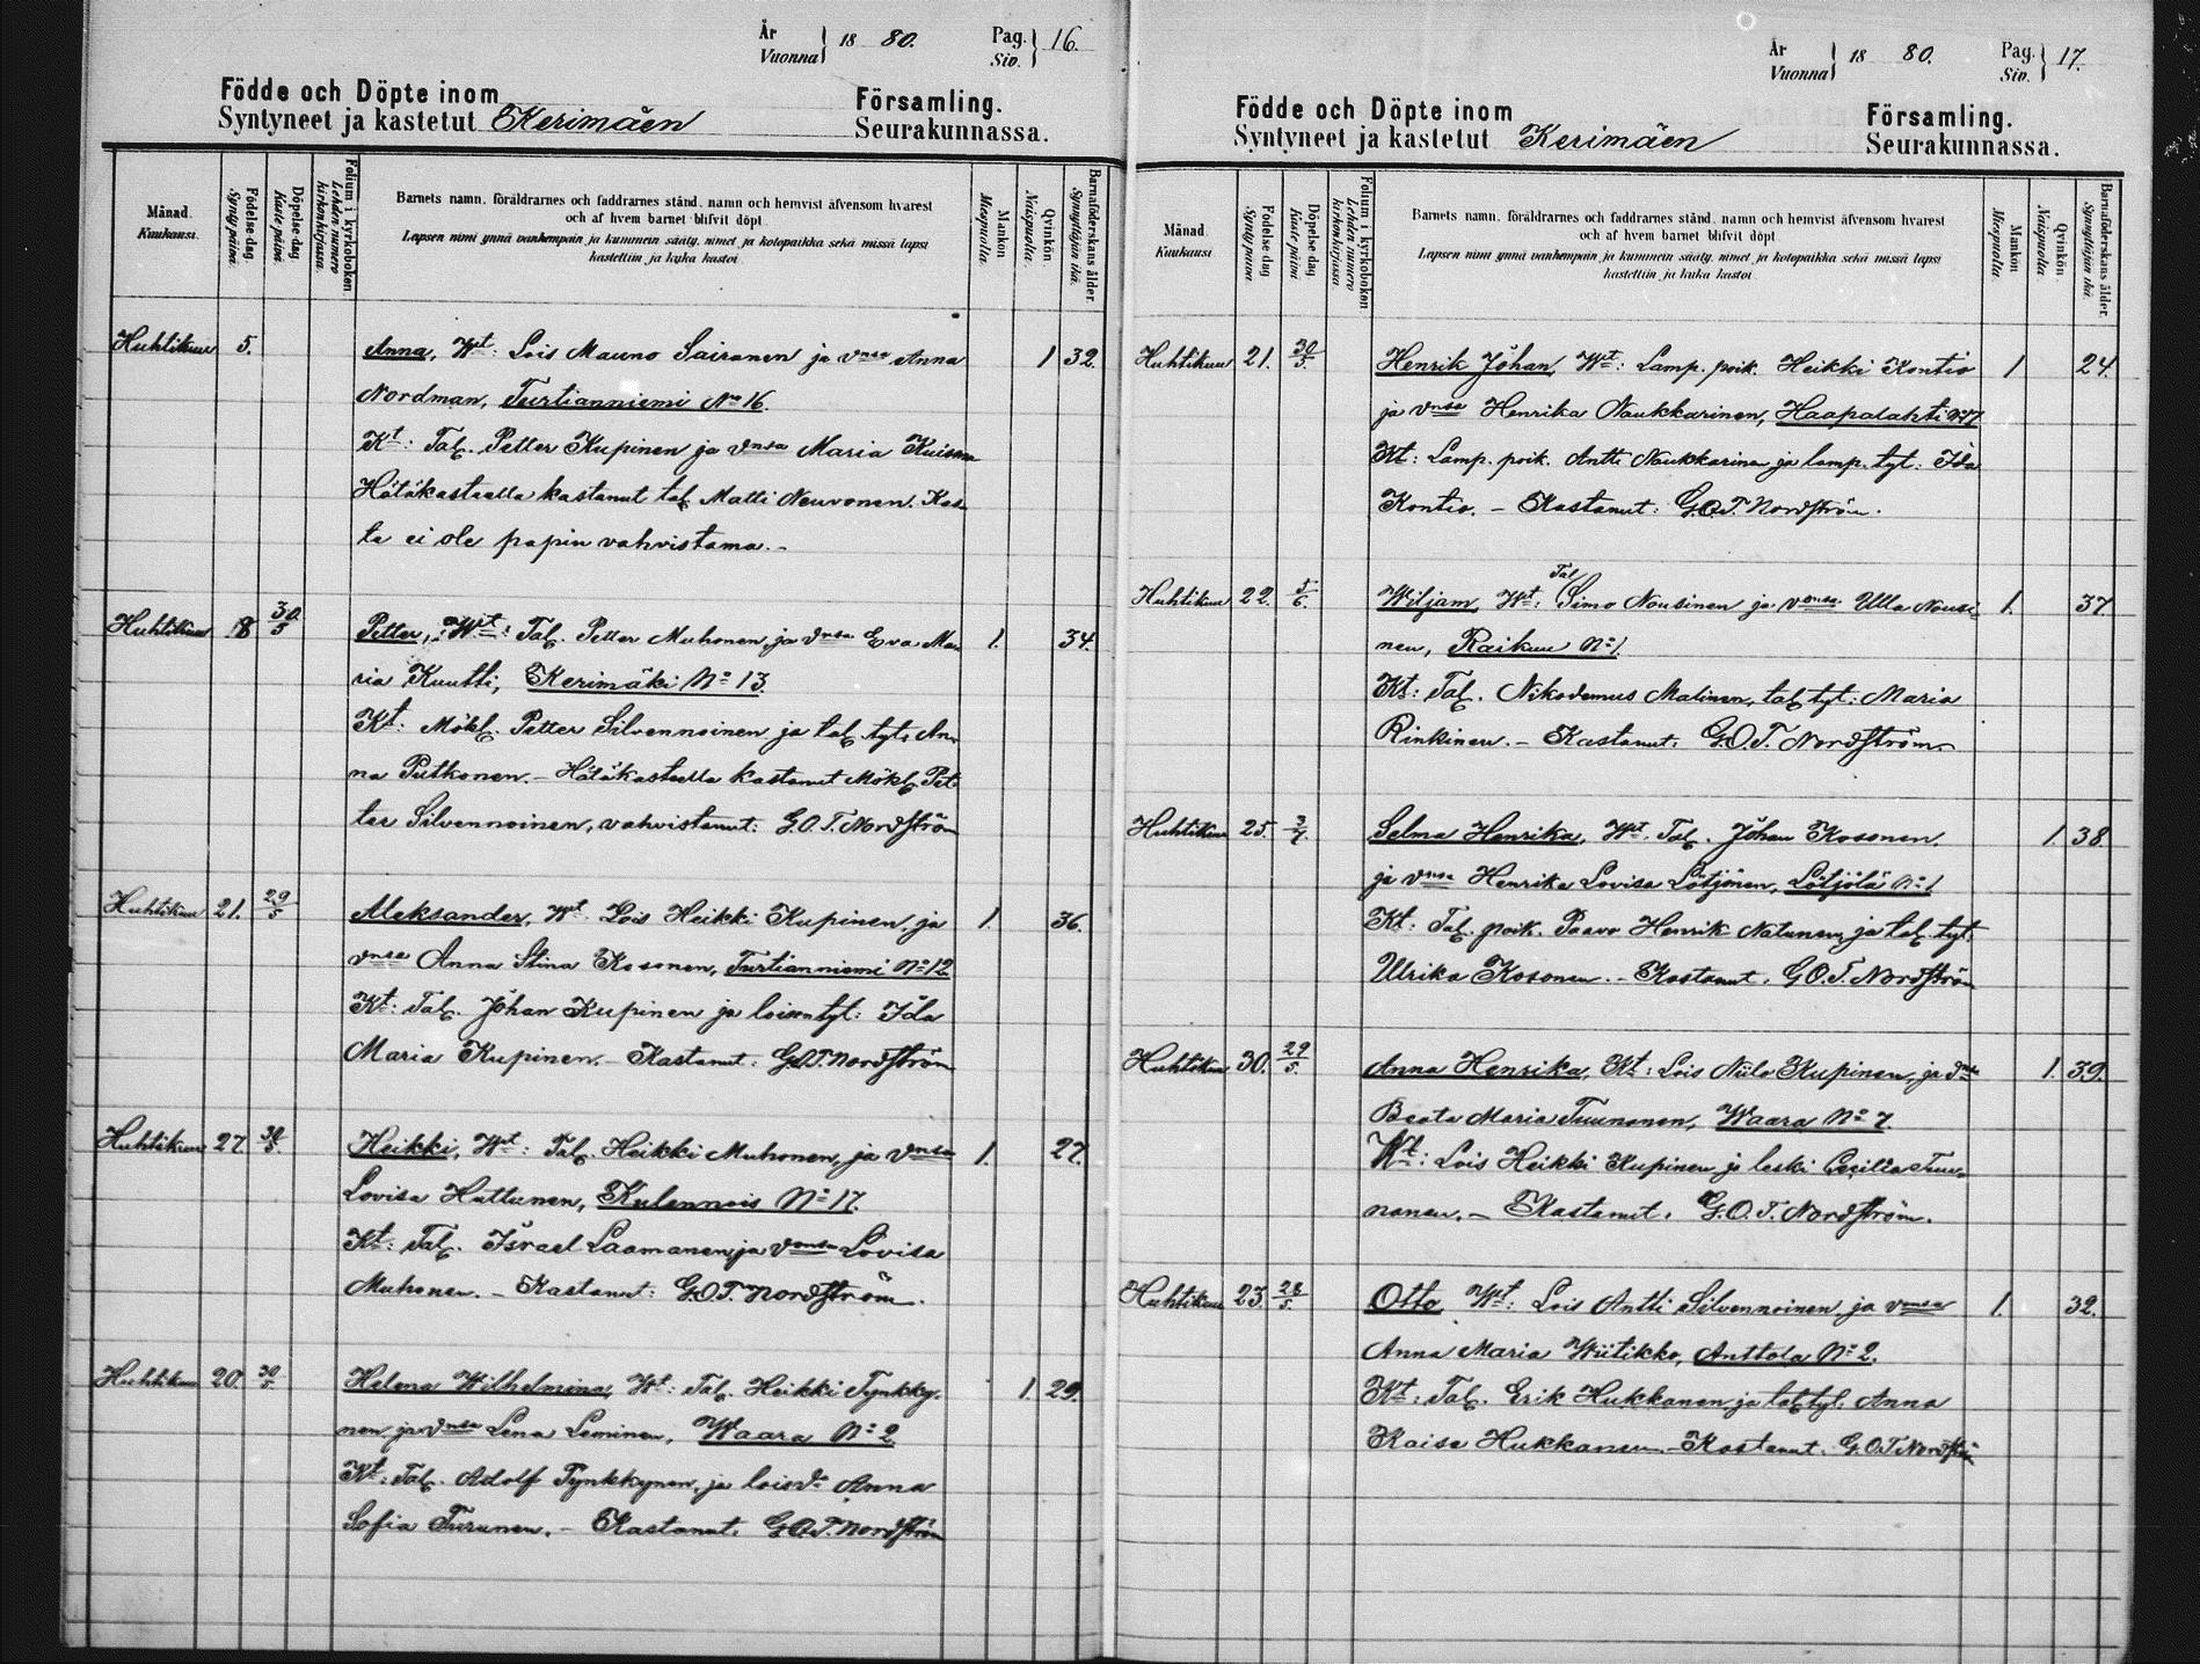 År
Vuonna } 18 80. Pag. Siv. } 16.
Födde och Döpte inom Församling.
Syntyneet ja kastetut Kerimäen Seurakunnassa.
Månad. Kuukausi.
Födelse-dag. Synty päivä.
Döpelse-dag. Kaste päivä.
Folium i kyrkoboken. Lehden numero kirkonkirjassa.
Barnets namn, föräldrarnes och faddrarnes stånd, namn och hemvist äfvensom hvarest
och af hvem barnet blifvit döpt.
Lapsen nimi ynnä vanhempain ja kummein sääty, nimet ja kotopaikka sekä missä lapsi
kastettiin ja kuka kastoi.
Mankön. Miespuolia.
Qvinkön. Naispuolia.
Barnaföderskans ålder. Synnyttäjän ikä.
Huhtikuu 5. Anna, Wt: Lois Mauno Sairanen ja vnsa Anna 1 32.
Nordman, Turtianniemi No 16.
Kt: Tal. Petter Kupinen ja vnsa Maria Kuisma
Hätäkasteella kastanut tal. Matti Neuvonen. Kas-
te ei ole papin vahvistama.-
Huhtikuu 8 30/5 Petter, Wt: Tal. Petter Muhonen ja vnsa Eva Ma- 1. 34.
ria Kuutti, Kerimäki No 13.
Kt: Mökl. Petter Silvennoinen ja tal. tyt. An-
na Putkonen. - Hätäkasteella kastanut Mökl. Pet-
ter Silvennoinen, vahvistanut: G.O.T. Nordström
Huhtikuu 21. 29/5 Aleksander, Wt. Lois Heikki Kupinen, ja 1. 36.
vnsa Anna Stina Kosonen, Turtianniemi No 12
Kt: Tal. Johan Kupinen ja loisen tyt: Ida
Maria Kupinen. - Kastanut: G.O.T. Nordström
Huhtikuu 27. 30/5. Heikki, Wt: Tal. Heikki Muhonen, ja vnsa 1. 27.
Lovisa Huttunen, Kulennois No 17.
Kt: Tal. Israel Laamanen, ja vnsa Lovisa
Muhonen. - Kastanut: G.O.T. Nordström.
Huhtikuu 20. 30/5. Helena Wilhelmina, Wt: Tal. Heikki Tynkky- 1. 29.
nen ja vnsa Lena Leminen, Waara No 2
Kt: Tal. Adolf Tynkkynen, ja lois Anna
Sofia Turunen. - Kastanut. G.O.T. Nordström
År
Vuonna } 18 80. Pag. Siv. } 17.
Födde och Döpte inom Församling.
Syntyneet ja kastetut Kerimäen Seurakunnassa.
Månad. Kuukausi
Födelse dag. Synty päivä
Döpelse dag. Kaste päivä
Folium i kyrkoboken Lehden numero kirkonkirjassa
Barnets namn, föräldrarnes och faddrarnes stånd, namn och hemvist äfvensom hvarest
och af hvem barnet blifvit döpt
Lapsen nimi ynnä vanhempain ja kummein sääty, nimet ja kotopaikka sekä missä lapsi
kastettiin ja kuka kastoi
Mankön Miespuolia.
Qvinkön. Naispuolia.
Barnaföderskans ålder. Synnyttäjän ikä.
Huhtikuu 21. 30/5. Henrik Johan, Wt: Lamp. poik. Heikki Kontio 1 24.
ja vnsa Henrika Naukkarinen, Haapalahti No 7
Kt: Lamp. poik. Antti Naukkarinen ja lamp. tyt: Ida
Kontio. - Kastanut: G.O.T. Nordström.
Huhtikuu 22. 5/6. Wiljam, Wt: Tal Simo Nousinen ja vnsa Ulla Nousi- 1. 37.
nen, Raikuu No 1.
Kt: Tal. Nikodemus Malinen, tal tyt: Maria
Rinkinen. - Kastanut. G.O.T. Nordström.
Huhtikuu 25. 3/7. Selma Henrika, Wt. Tal. Johan Kosonen. 1. 38.
ja vnsa Henrika Lovisa Lötjönen, Lötjölä No 1
Kt: Tal. poik. Paavo Henrik Natunen, ja tal. tyt.
Ulrika Kosonen. - Kastanut. G.O.T. Nordström
Huhtikuu 30. 29/5. Anna Henrika, Kt: Lois Niilo Kupinen, ja vnsa 1. 39.
Beata Maria Tuunanen, Waara No 7.
Wt: Lois Heikki Kupinen ja leski Cecilia Tuu-
nanen. - Kastanut. G.O.T. Nordström.
Huhtikuu 23. 28/5. Otto Wt: Lois Antti Silvennoinen ja vnsa 1. 32.
Anna Maria Wiitikko, Anttola No 2.
Kt: Tal. Erik Hukkanen ja tal tyt. Anna
Kaisa Hukkanen. - Kastanut. G.O.T. Nordström